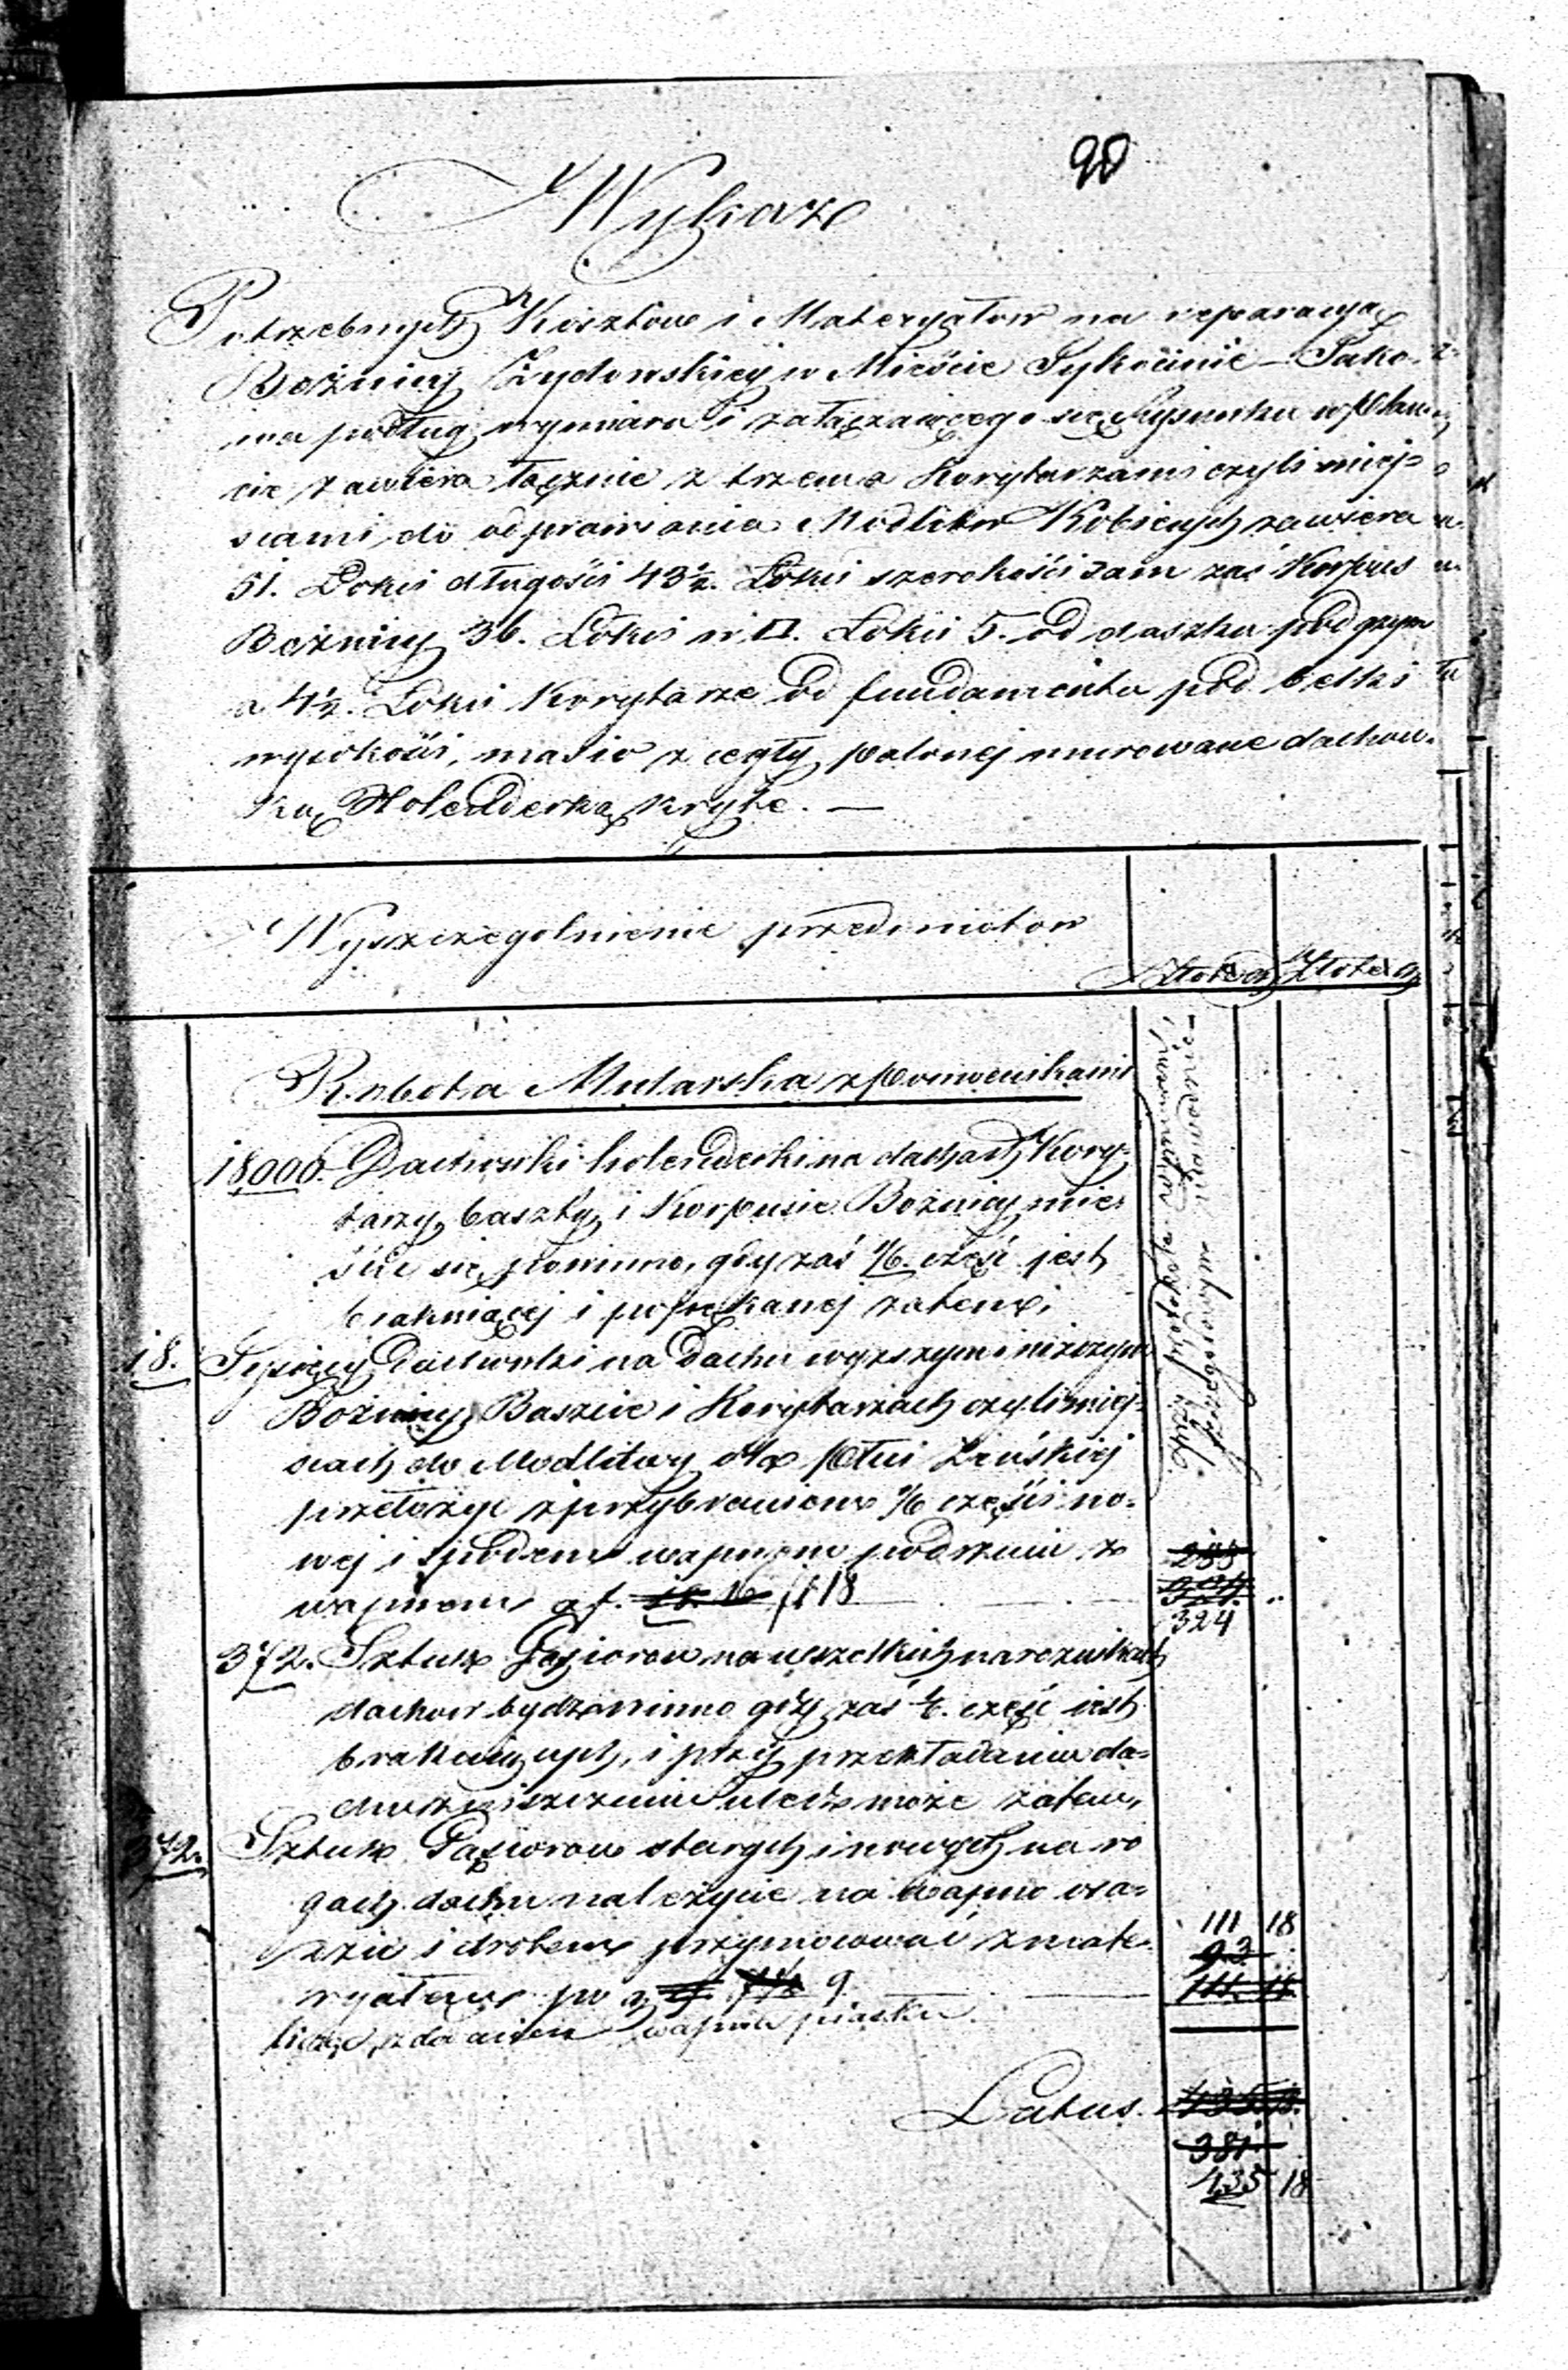 90
Wykaz
Potrzebnych Kosztow i Materyałow na reparacyą
Bożnicy Żydowskiey w Mieście Tykocinie – Tako-
wa podług wymiaru i załączaiącego się Rysunku w plan-
cie zawiera łącznie z trzema Korytarzami czyli miej=
scami do odprawiania Modlitw Kobiecych zawiera
51. Łokci długości 43½. Łokci szerokości sam zaś Korpus
Bożnicy 36. Łokci w □. Łokci 5. od daszku pod gzym
a 4½. Łokci Korytarze od fundamentu pod belki
wysokości, masiw z cegły palonej murowane dachow-
ką Holenderką kryte. —
Wyszczegolnienie przedmiotow
Złote gr Złote gr
Robota Mularska z pomocnikami
18000. Dachowki holenderki na dachach Kory-
tarzy, baszty, i Korpusie Bożnicy mie-
ścić się powinno, gdy zaś 1/6. część jest
brakniącej i popękanej zatem,
18. Tysięcy Dachowki na Dachu wyższym i niższym
Bożnicy, Baszcie i Korytarzach czyli miej-
scach do Modlitwy dla płci Żeńskiej
przełożyć z przybraniem 1/6 części no-
wej i spodem wapnem podrzucić z
wapnem a f. 18. 16 fl 18
285
324
324
przy protokole i warunkow
szczegółowym
372. Sztuk Gąsiorow na wszelkich narożnikach
dachow bydź powinno gdy zaś część iest
brakuiących, i przy przekładaniu da-
chu zniszczeniu uledz może zatem,
372. Sztuk Gąsiorow starych i nowych na ro
gach dachu należycie na wapno osa-
dzić i drotem przymocować z mate-
ryałem po g 9
111 18
93
111 18
licząc z dodaniem wapna piasku.
Latus. 435 18
381
435 18